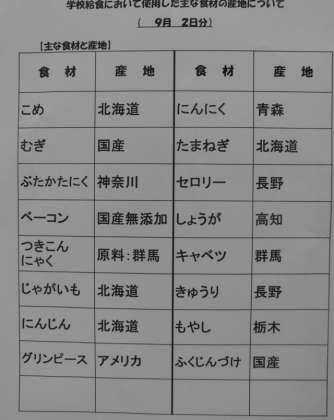 学校給食において使用した主な食材の産地について
( 9月 2日分)
[主な食材と産地]
食 材 産 地 食 材 産 地
こめ 北海道 にんにく 青森
むぎ 国産 たまねぎ 北海道
ぶたかたにく 神奈川 セロリー 長野
ベーコン 国産無添加 しょうが 高知
つきこん
にゃく 原料:群馬 キャベツ 群馬
じゃがいも 北海道 きゅうり 長野
にんじん 北海道 もやし 栃木
グリンピース アメリカ ふくじんづけ 国産